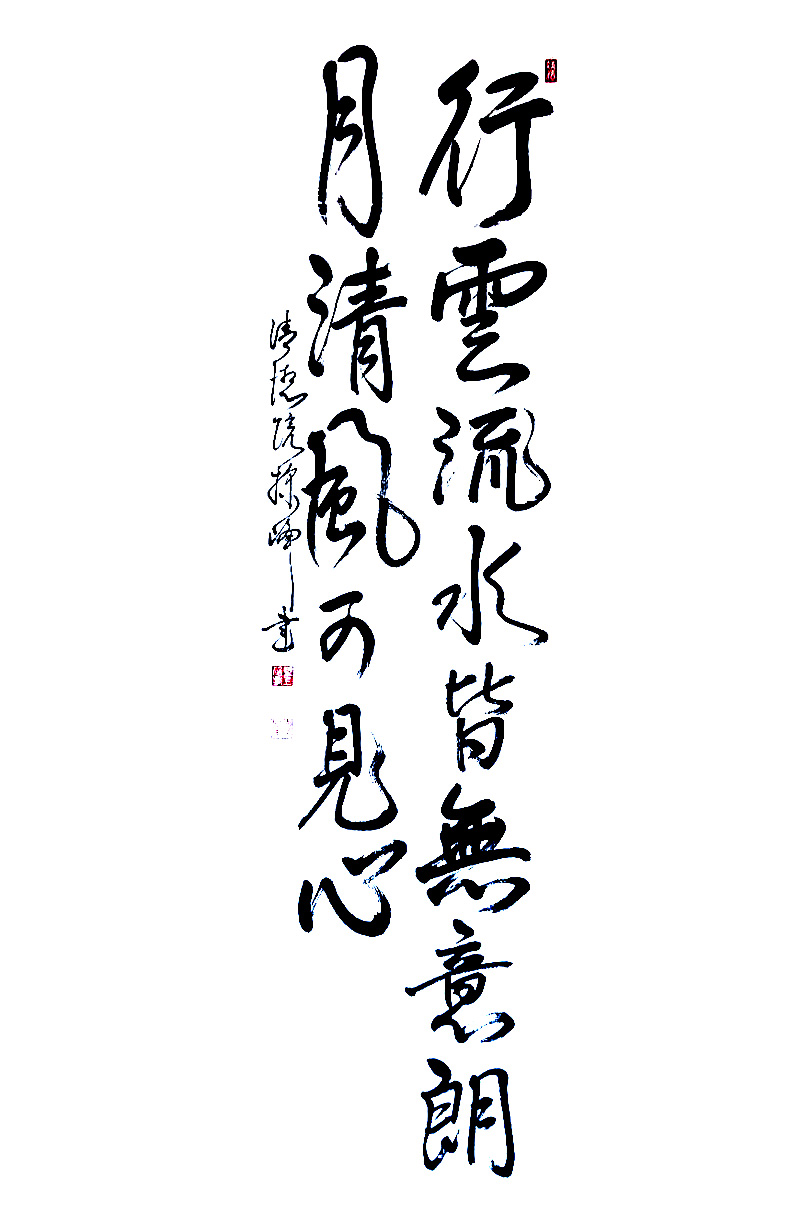 行雲流水皆無意朗
月清風可見心
書